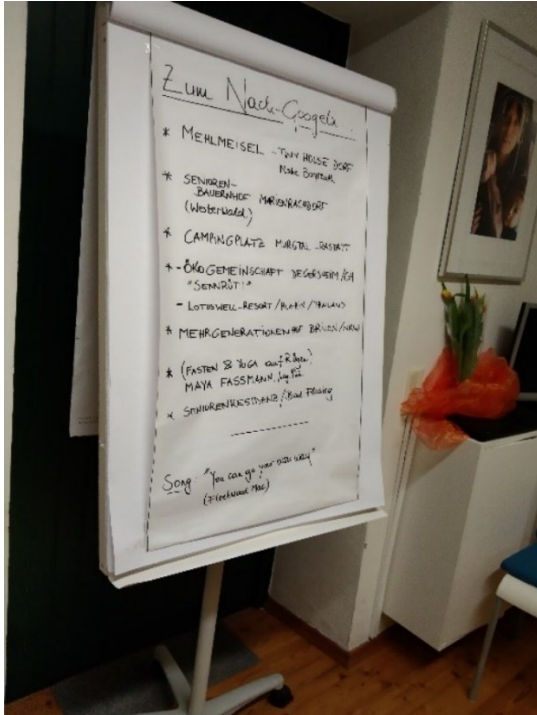 Zum Nach-Googeln
* MEHLMEISEL - TINY HOUSE DORF
* SENIOREN-
BAUERNHOF MARIENRACHDORF
(Westerwald)
* CAMPINGPLATZ MURGTAL - RASTATT
* - ÖKOGEMEINSCHAFT DEGERSHEIM/CH
"SENNRÜTI"
- LOTUSWELL-RESORT / / THAILAND
* MEHRGENERATIONENHOF /NRW
* (FASTEN & YOGA auf Rügen)
MAYA FASSMANN,
* SENIORENRESIDENZ / Bad Füssing
Song: "You can go your own way"
(Fleetwood Mac)